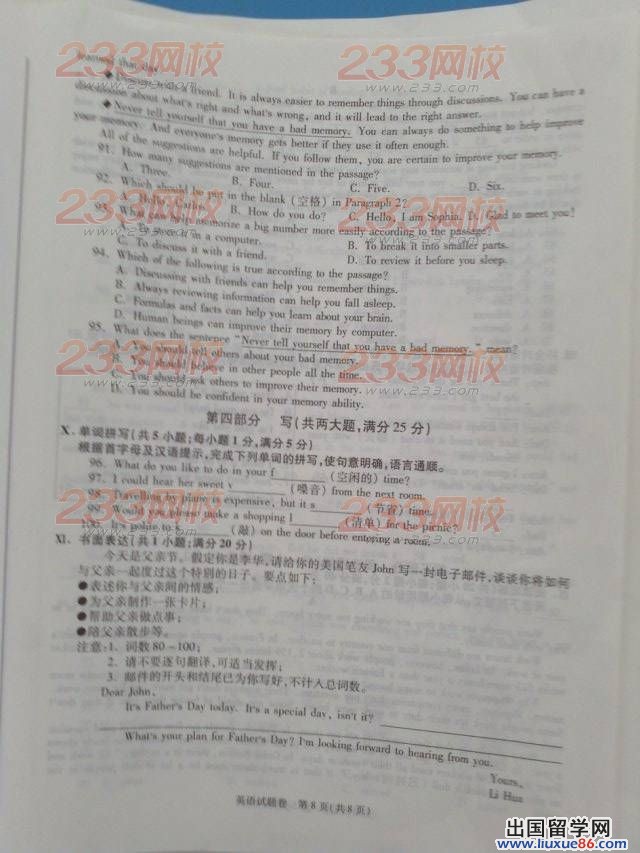 friend. It is always easier to remember things through discussions. You can have a
about what's right and what's wrong, and it will lead to the right answer.
●Never tell yourself that you have a bad memory. You can always do something to help improve
your memory. And everyone's memory gets better if they use it often enough.
All of the suggestions are helpful. If you follow them, you are certain to improve your memory.
91. How many suggestions are mentioned in the passage?
A. Three. B. Four. C. Five. D. Six.
92. Which should be put in the blank (空格) in Paragraph 2?
A. Hello, B. How do you do? C. Hello, I am Sophia. D. Glad to meet you!
93. What can help memorize a big number more easily according to the passage?
in a computer. B. To break it into smaller parts.
C. To discuss it with a friend. D. To review it before you sleep.
94. Which of the following is true according to the passage?
A. Discussing with friends can help you remember things.
B. Always reviewing information can help you fall asleep.
C. Formulas and facts can help you learn about your brain.
D. Human beings can improve their memory by computer.
95. What does the sentence "Never tell yourself that you have a bad memory." mean?
A. You should tell others about your bad memory.
B. You should believe in other people all the time.
C. You should ask others to improve their memory.
D. You should be confident in your memory ability.
第四部分 写(共两大题,满分25分)
X. 单词拼写(共5小题;每小题1分,满分5分)
根据首字母及汉语提示,完成下列单词的拼写,使句意明确,语言通顺。
96. What do you like to do in your f________ (空闲的) time?
97. I could hear her sweet v________ (嗓音) from the next room.
98. Travelling by plane is expensive, but it s________ (节省) time.
99. Would you please make a shopping l________ (清单) for the picnic?
100. It's polite to k________ (敲) on the door before entering a room.
XI. 书面表达(共1小题;满分20分)
今天是父亲节。假定你是李华,请给你的美国笔友John写一封电子邮件,谈谈你将如何
与父亲一起度过这个特别的日子。要点如下:
●表述你与父亲间的情感;
●为父亲制作一张卡片;
●帮助父亲做点事;
●陪父亲散步等。
注意:1. 词数80-100;
2. 请不要逐句翻译,可适当发挥;
3. 邮件的开头和结尾已为你写好,不计入总词数。
Dear John,
It's Father's Day today. It's a special day, isn't it?
What's your plan for Father's Day? I'm looking forward to hearing from you.
Yours,
Li Hua
英语试题卷 第8页(共8页)
233网校
www.233.com
出国留学网
www.liuxue86.com